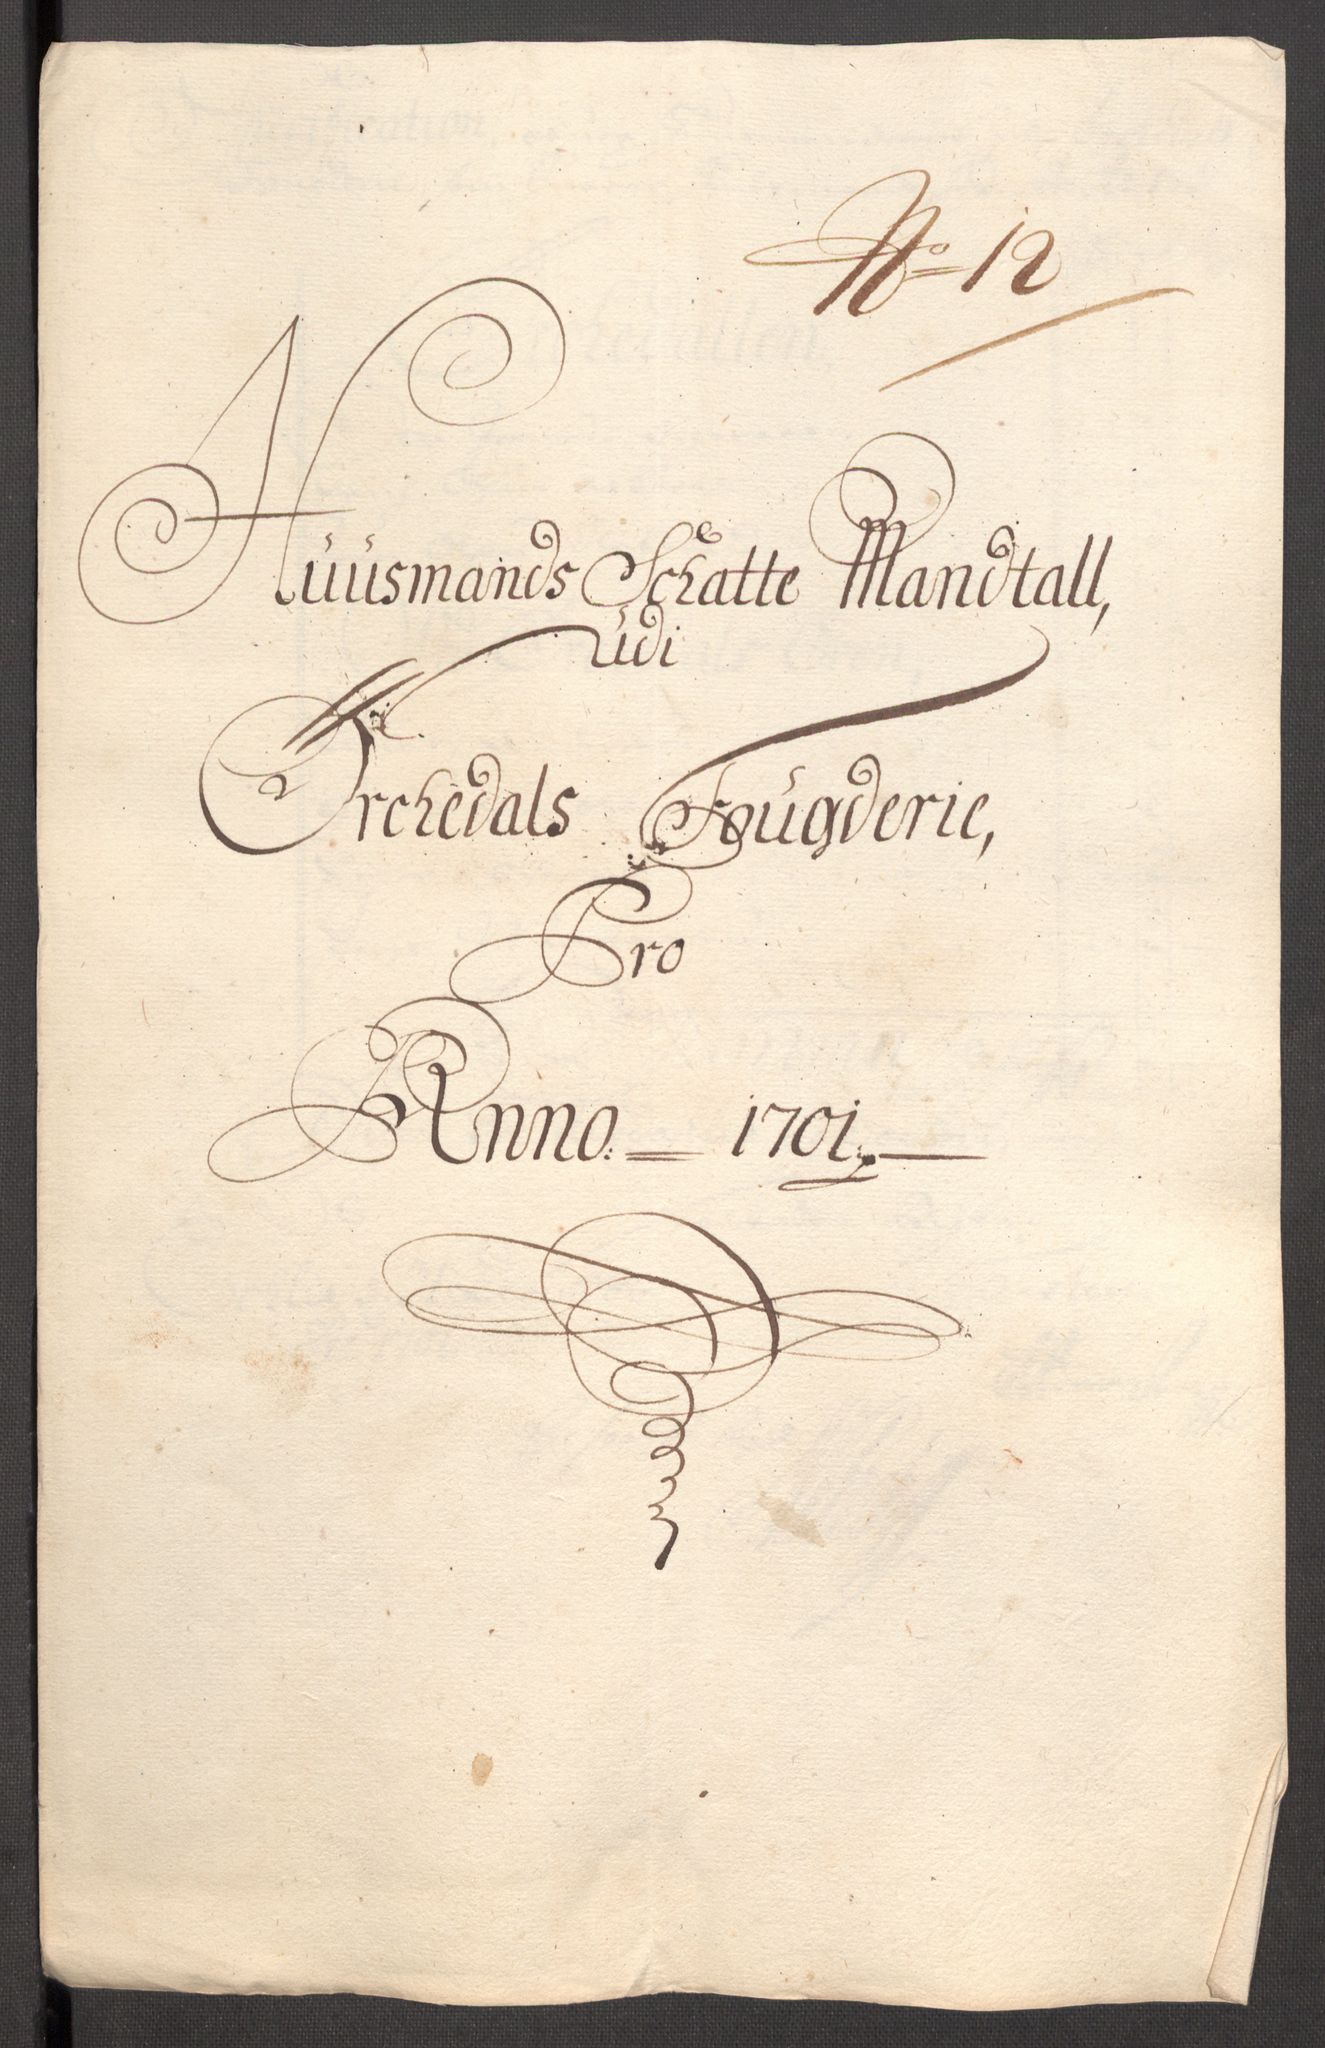 No 12
Huusmands Schatte Mandtall,
udi
Orchedals Fougderie,
Pro
Anno. 1701.